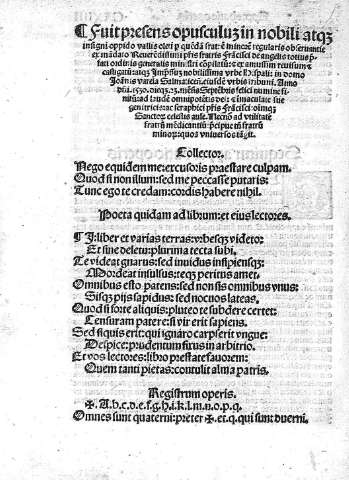 ¶ Fuit presens opusculuz in nobili atqz
insigni oppido vallis oleti p quēdā fratrē minorē regularis obseruantie
ex mādato Reuerēdissimi pris fratris frācisci de angelis totius p̄
fati ordinis generalis ministri cōpilatū: ex amussim reuisum
castigatū: atqz Impssuz nobilissima vrbe Hispali: in domo
Joannis varela Salmāticen. eiusdē vrbis tribuni. Anno
dñi .1530. diez. 23. mēsis Septēbris felici numine fi-
nitū: ad laudē omnipotētis dei: immaculate sue
genitricis: ac seraphici pris frācisci oimqz
Sanctoz celestis aule. Necnō ad vtilitatē
fratrū medicantiū: pcipue tn̄ fratrū
minorz: quos vniuersos tāgit.
Collector.
Nego equidem me: excusoris praestare culpam.
Quod si non illum: sed me peccasse putaris:
Tunc ego te credam: cordis habere nihil.
Poeta quidam ad librum: et eius lectores.
¶ I: liber et varias terras: vrbesqz videto:
Et sine deletur: plurima tecta subi.
Te videat gnarus: sed inuidus insipiensqz:
Mordeat insulsus: teqz peritus amet.
Omnibus esto patens: sed non sis omnibus vnus:
Sisqz pijs sapidus: sed nocuos lateas.
Quod si forte aliquis: pluteo te subdere certet:
Censuram patere: si vir erit sapiens.
Sed si quis erit: qui ignaro carpserit vngue:
Despice: prudentum fixus in arbitrio.
Et vos lectores: libro prestate fauorem:
Quem tanti pietas: contulit alma patris.
Registrum operis.
✠. A. b. c. d. e. f. g. h. i. k. l. m. n. o. p. q.
Omnes sunt quaterni: preter ✠. et. q. qui sunt duerni.